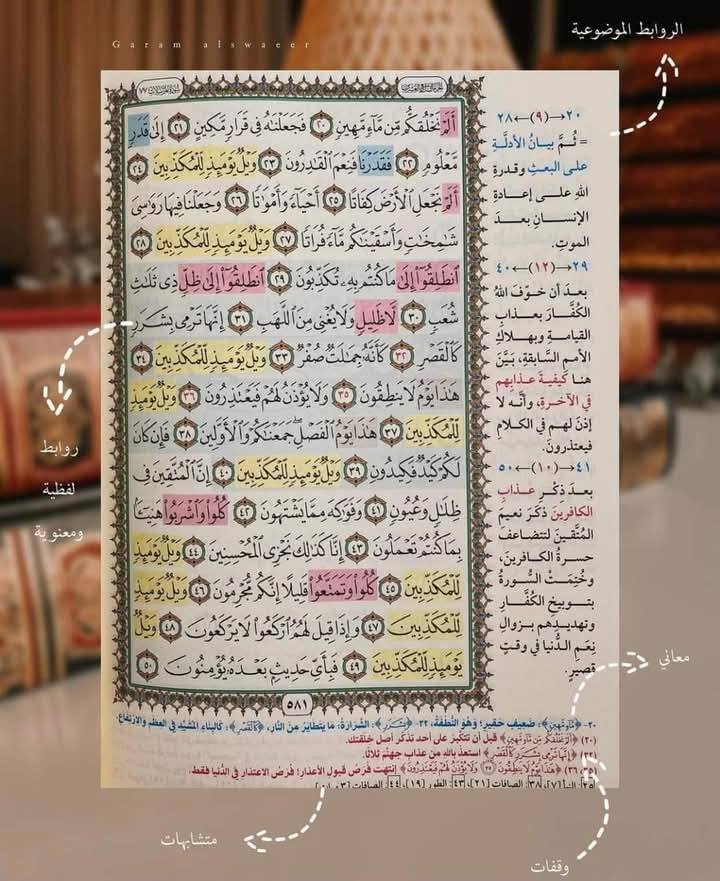 الروابط الموضوعية
Garam alswaeer
أَلَمْ نَخْلُقكُّم مِّن مَّآءٍ مَّهِينٍ ٢٠ فَجَعَلْنَٰهُ فِى قَرَارٍ مَّكِينٍ ٢١ إِلَىٰ قَدَرٍ
مَّعْلُومٍ ٢٢ فَقَدَرْنَا فَنِعْمَ ٱلْقَٰدِرُونَ ٢٣ وَيْلٌ يَوْمَئِذٍ لِّلْمُكَذِّبِينَ ٢٤
أَلَمْ نَجْعَلِ ٱلْأَرْضَ كِفَاتًا ٢٥ أَحْيَآءً وَأَمْوَٰتًا ٢٦ وَجَعَلْنَا فِيهَا رَوَٰسِىَ
شَٰمِخَٰتٍ وَأَسْقَيْنَٰكُم مَّآءً فُرَاتًا ٢٧ وَيْلٌ يَوْمَئِذٍ لِّلْمُكَذِّبِينَ ٢٨
ٱنطَلِقُوٓا۟ إِلَىٰ مَا كُنتُم بِهِۦ تُكَذِّبُونَ ٢٩ ٱنطَلِقُوٓا۟ إِلَىٰ ظِلٍّ ذِى ثَلَٰثِ
شُعَبٍ ٣٠ لَّا ظَلِيلٍ وَلَا يُغْنِى مِنَ ٱللَّهَبِ ٣١ إِنَّهَا تَرْمِى بِشَرَرٍ
كَٱلْقَصْرِ ٣٢ كَأَنَّهُۥ جِمَٰلَتٌ صُفْرٌ ٣٣ وَيْلٌ يَوْمَئِذٍ لِّلْمُكَذِّبِينَ ٣٤
هَٰذَا يَوْمُ لَا يَنطِقُونَ ٣٥ وَلَا يُؤْذَنُ لَهُمْ فَيَعْتَذِرُونَ ٣٦ وَيْلٌ يَوْمَئِذٍ
لِّلْمُكَذِّبِينَ ٣٧ هَٰذَا يَوْمُ ٱلْفَصْلِ جَمَعْنَٰكُمْ وَٱلْأَوَّلِينَ ٣٨ فَإِن كَانَ
لَكُمْ كَيْدٌ فَكِيدُونِ ٣٩ وَيْلٌ يَوْمَئِذٍ لِّلْمُكَذِّبِينَ ٤٠ إِنَّ ٱلْمُتَّقِينَ فِى
ظِلَٰلٍ وَعُيُونٍ ٤١ وَفَوَٰكِهَ مِمَّا يَشْتَهُونَ ٤٢ كُلُوا۟ وَٱشْرَبُوا۟ هَنِيٓـًٔۢا
بِمَا كُنتُمْ تَعْمَلُونَ ٤٣ إِنَّا كَذَٰلِكَ نَجْزِى ٱلْمُحْسِنِينَ ٤٤ وَيْلٌ يَوْمَئِذٍ
لِّلْمُكَذِّبِينَ ٤٥ كُلُوا۟ وَتَمَتَّعُوا۟ قَلِيلًا إِنَّكُم مُّجْرِمُونَ ٤٦ وَيْلٌ يَوْمَئِذٍ
لِّلْمُكَذِّبِينَ ٤٧ وَإِذَا قِيلَ لَهُمُ ٱرْكَعُوا۟ لَا يَرْكَعُونَ ٤٨ وَيْلٌ
يَوْمَئِذٍ لِّلْمُكَذِّبِينَ ٤٩ فَبِأَىِّ حَدِيثٍۭ بَعْدَهُۥ يُؤْمِنُونَ ٥٠
٥٨١
٢٠→(٩)←٢٨
= ثُمَّ بيانُ الأدلَّةِ
على البعثِ وقدرةِ
اللهِ على إعادةِ
الإنسانِ بعدَ
الموتِ.
٢٩→(١٢)←٤٠
بعدَ أن خوَّفَ اللهُ
الكُفَّارَ بعذابِ
القيامةِ وبهلاكِ
الأممِ السابقةِ، بَيَّنَ
هنا كيفيةَ عذابِهم
في الآخرةِ، وأنَّه لا
إذنَ لهم في الكلامِ
فيعتذرونَ.
٤١→(١٠)←٥٠
بعدَ ذكرِ عذابِ
الكافرينَ ذكرَ نعيمَ
المُتَّقينَ لتتضاعفَ
حسرةُ الكافرينَ،
وخُتِمَتْ السُّورةُ
بتوبيخِ الكُفَّارِ
وتهديدِهم بزوالِ
نِعَمِ الدُّنيا في وقتٍ
قصيرٍ.
روابط
لفظية
ومعنوية
معاني
٢٠- ﴿مَّآءٍ مَّهِينٍ﴾: ضعيفٍ حقيرٍ؛ وهُوَ النُّطفَةُ، ٣٢- ﴿بِشَرَرٍ﴾: الشَّرارَةُ: مَا يَتَطايَرُ مِنَ النَّارِ، ﴿كَٱلْقَصْرِ﴾: كَالبِناءِ المُشَيَّدِ في العِظَمِ والارتِفاعِ.
(٢٠) ﴿أَلَمْ نَخْلُقكُّم مِّن مَّآءٍ مَّهِينٍ﴾ قبل أن تتكبَّر على أحد تذكَّر أصل خلقتك.
(٣٢) ﴿إِنَّهَا تَرْمِى بِشَرَرٍ كَٱلْقَصْرِ﴾ استعذ بالله من عذاب جهنَّم ثلاثًا.
(٣٥، ٣٦) ﴿هَٰذَا يَوْمُ لَا يَنطِقُونَ ٣٥ وَلَا يُؤْذَنُ لَهُمْ فَيَعْتَذِرُونَ﴾ انتهت فُرَصُ قبولِ الأعذارِ؛ فُرَصُ الاعتذارِ في الدُّنيا فقط.
٢٥: النبأ [٧]، ٣٨: الصافات [٢١]، ٤٣: الطور [١٩]، ٤٤: الصافات
متشابهات
وقفات